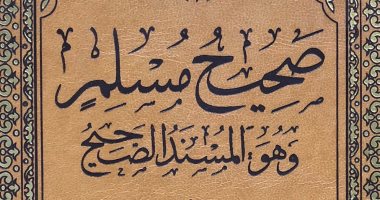 صَحِيحُ مُسْلِمٍ
وَهُوَ المُسْنَدُ الصَّحِيحُ